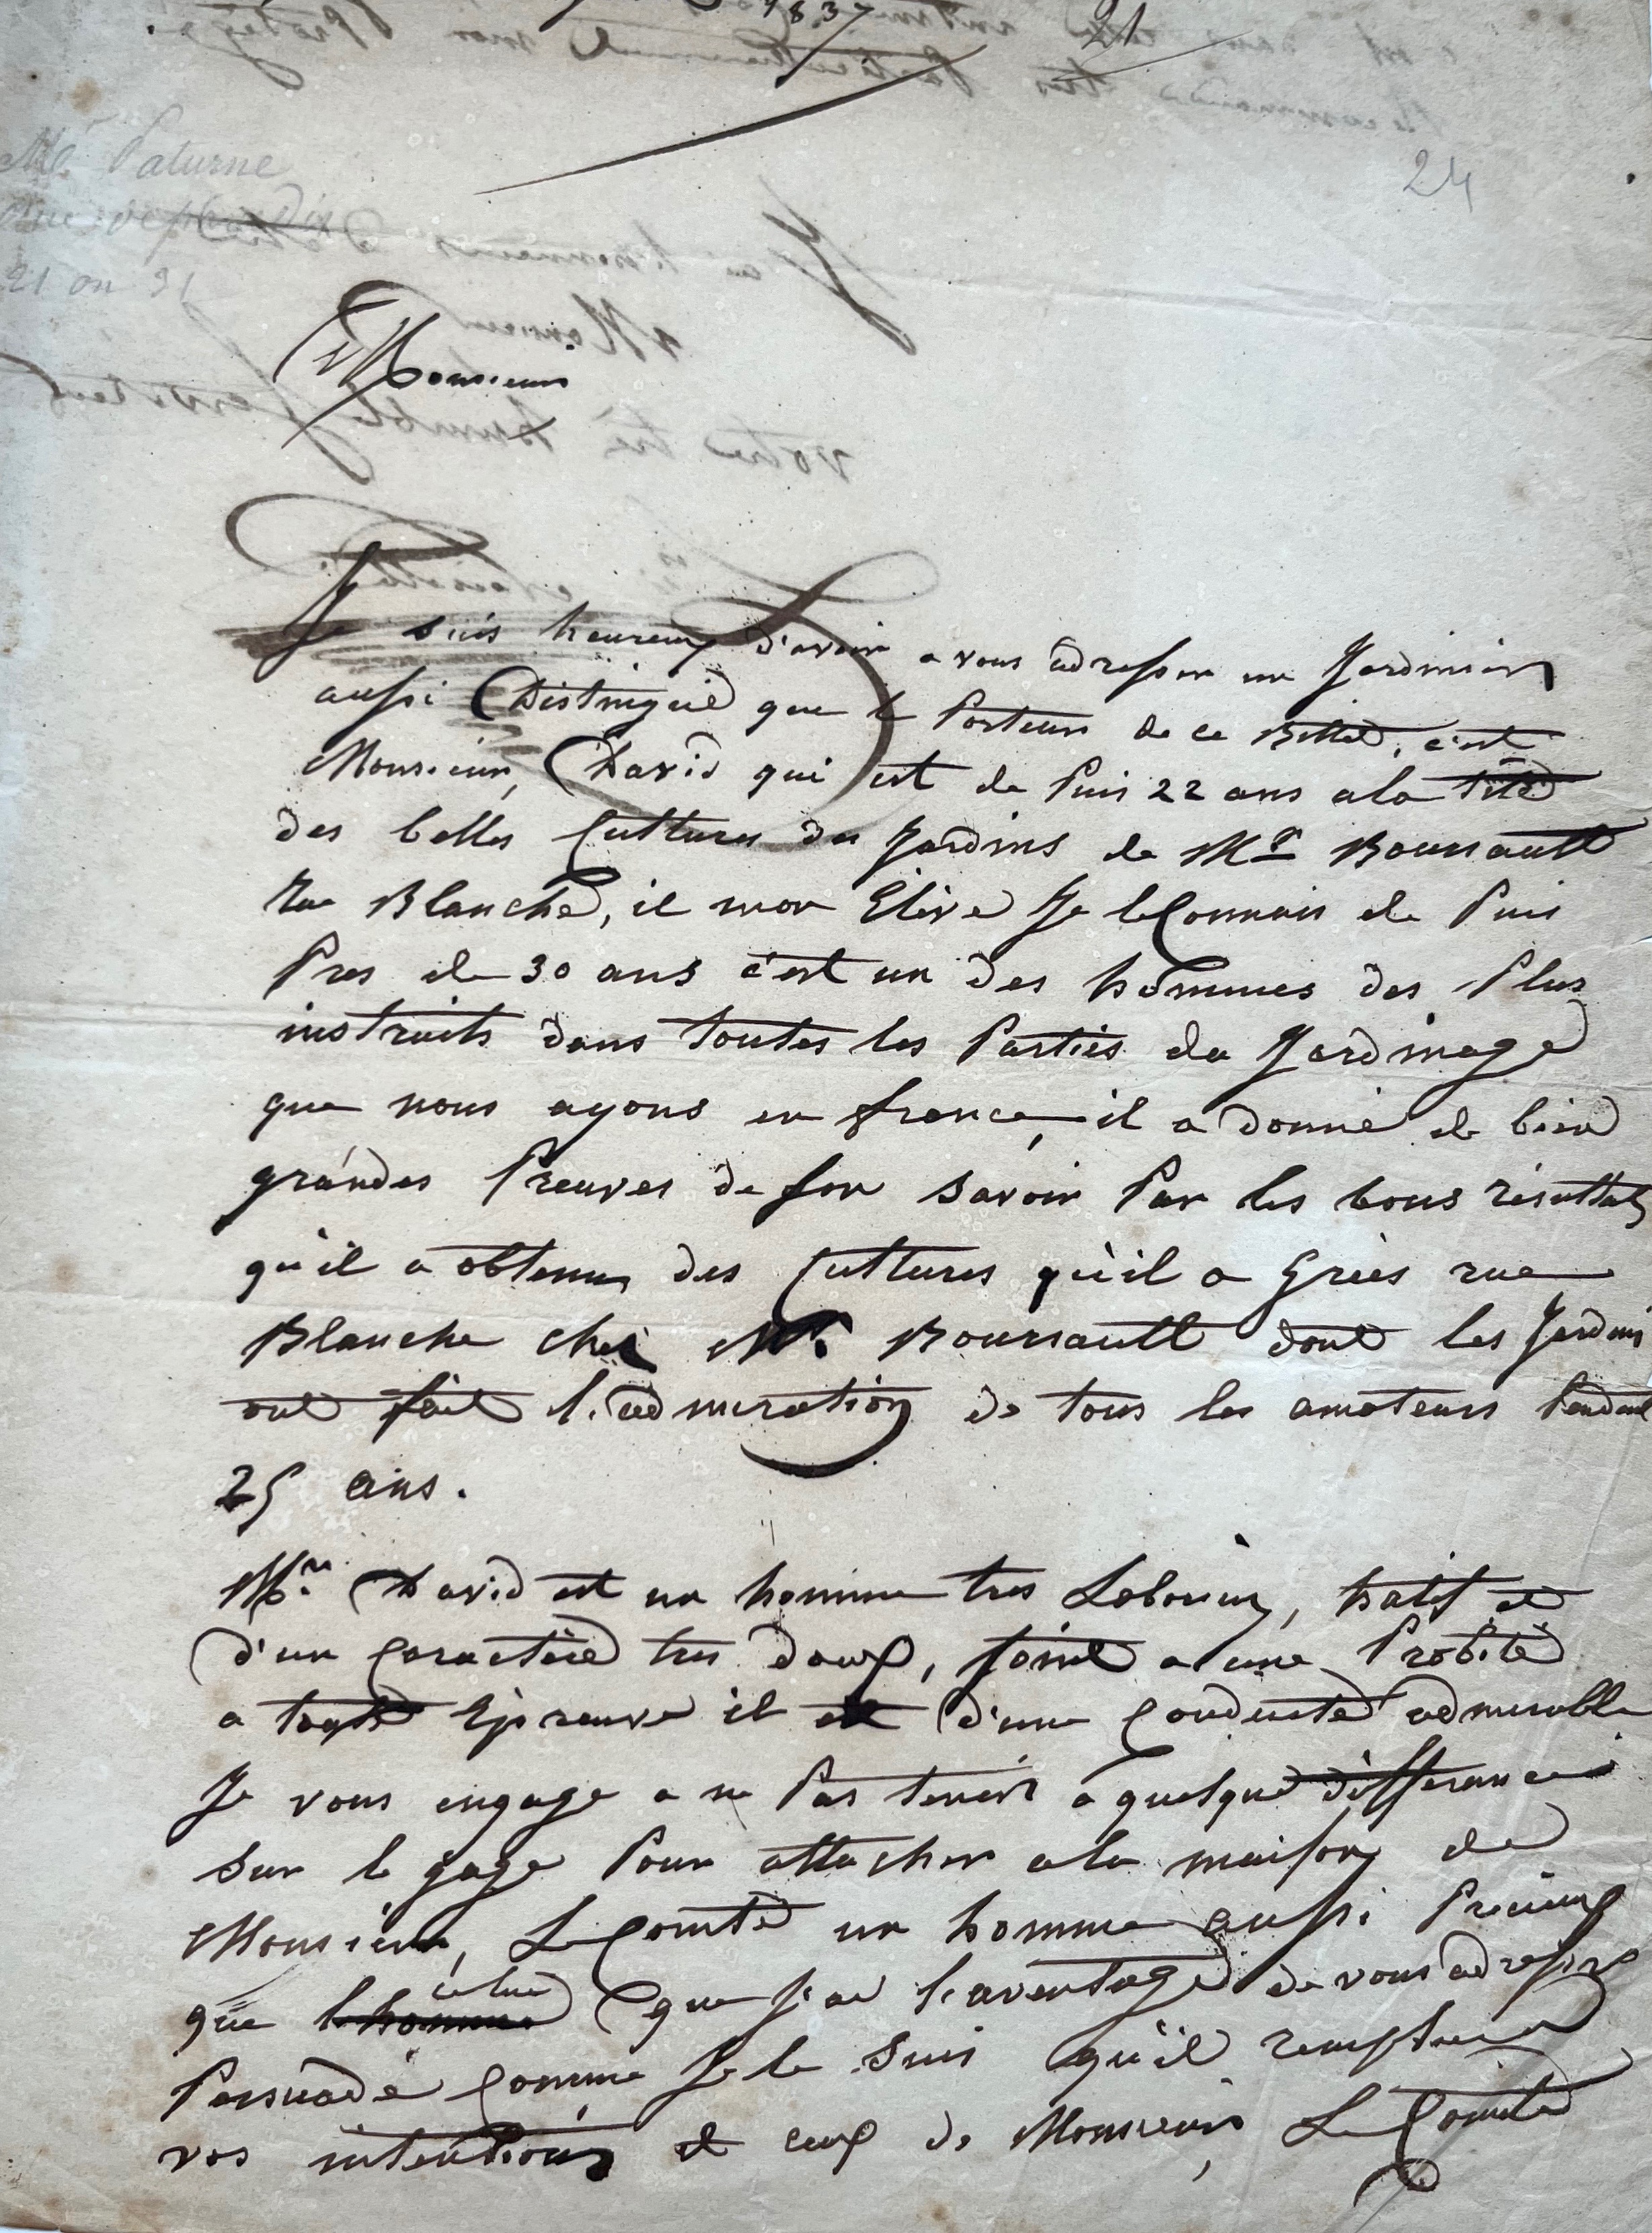 1837
21
24
Mr Paturne
21 ou 31
Monsieur
Je suis heureux d'avoir a vous adresser un Jardinier
aussi Distingué que le Porteur de ce Billet, c'est
Monsieur, David qui est de Puis 22 ans a la tête
des belles Cultures des Jardins de Mr Boursault
Rue Blanche, il mon Elève Je le Connais de Puis
Pres de 30 ans c'est un des hommes des Plus
instruits dans toutes les Parties du Jardinage
que nous ayons en france, il a donné de bien
grandes Preuves de son savoir Par les bons résultats
qu'il a obtenu des Cultures qu'il a Gréés rue
Blanche chez Mr Boursault dont les Jardins
ont fait l'admiration de tous les amateurs Pendant
25 ans.
Mr. David est un homme tres Laborieux, hatif et
d'un Caractère tres doux, joint a une Probité
a toute Epreuve il est d'une Conduite admirable
Je vous engage a ne Pas tenir a quelque différance
sur le gage Pour attacher a la maison de
Monsieur, Le Comte un homme aussi Précieux
que l'homme celui que j'ai l'aventage de vous adresser
Persuadé Comme Je le suis qu'il remplira
vos intentions et ceux de Monsieur, Le Comte